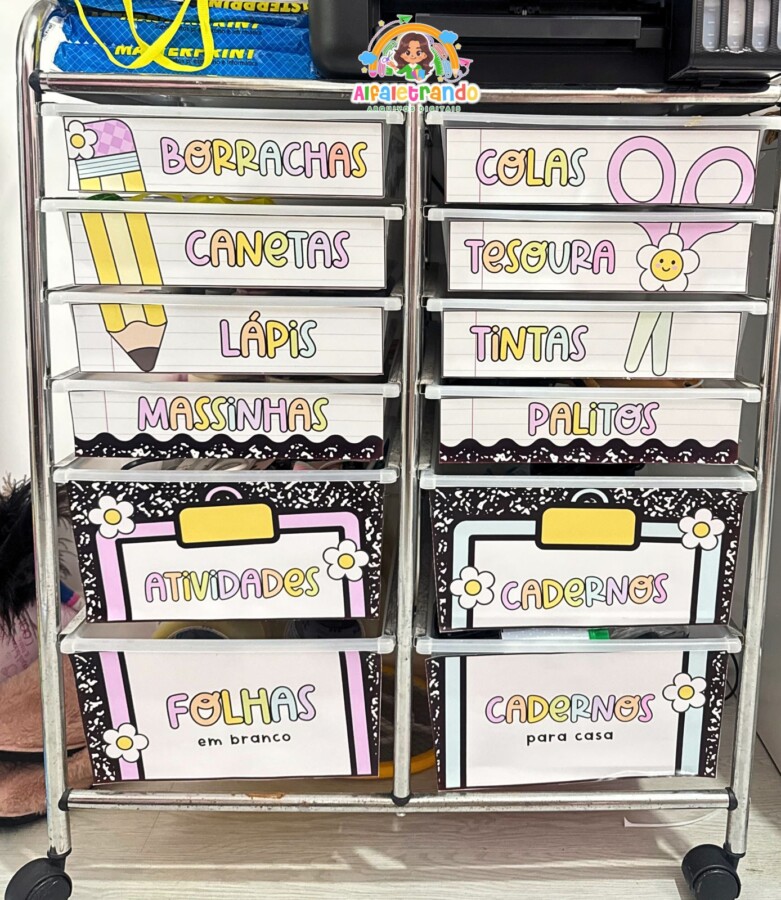 MASTERPRINT
Alfaletrando
ARQUIVOS DIGITAIS
BORRACHAS
CANETAS
LÁPIS
MASSINHAS
ATIVIDADES
FOLHAS
em branco
COLAS
TESOURA
TINTAS
PALITOS
CADERNOS
CADERNOS
para casa